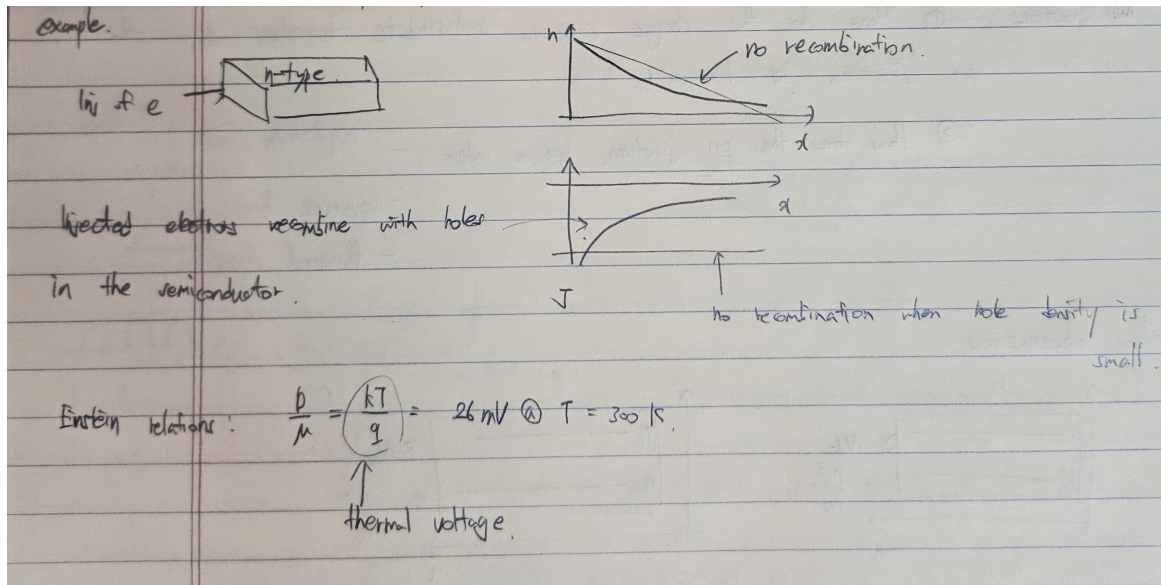 example.
n
no recombination.
n-type
Inj of e
x
x
Injected electrons recombine with holes
in the semiconductor.
J
no recombination when hole density is
small.
Einstein relations: D/μ = kT/q = 26 mV @ T = 300 K.
thermal voltage.